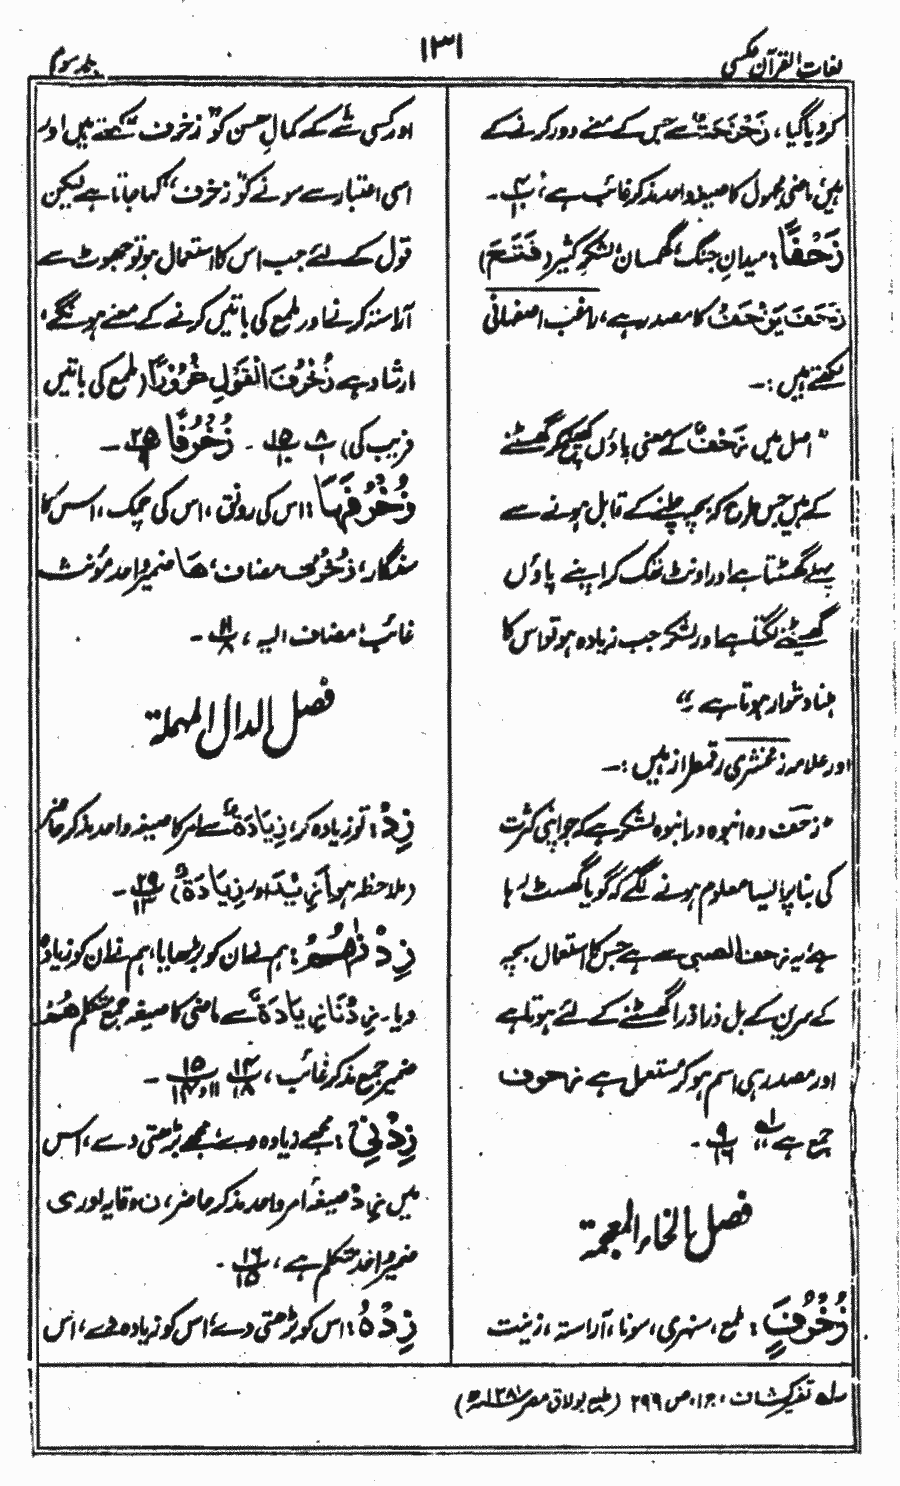 لغات القرآن عکسی
۱۳۱
جلد سوم
کر دیا گیا، زَحْزَحَتٌ سے جس کے معنے دور کرنے کے
ہیں، ماضی مجہول کا صیغہ واحد مذکر غائب ہے،
زَحْفًا: میدانِ جنگ، گھمسان، لشکرِ کثیر (فَتَحَ)
زَحَفَ یَزْحَفُ کا مصدر ہے، راغب اصفہانی
لکھتے ہیں :-
"اصل میں زَحْفٌ کے معنی پاؤں کھینچ کر گھسٹنے
کے ہیں جس طرح کہ بچہ چلنے کے قابل ہونے سے
پہلے گھسٹتا ہے اور اونٹ تھک کر اپنے پاؤں
گھسیٹنے لگتا ہے اور لشکر جب زیادہ ہو تو اس کا
چلنا دشوار ہوتا ہے۔"
اور علامہ زمخشری رقمطراز ہیں :-
"زحف وہ انبوہ در انبوہ لشکر ہے کہ جو اپنی کثرت
کی بنا پر ایسا معلوم ہونے لگے کہ گویا گھسٹ رہا
ہے، یہ زحف الصبی سے ہے جس کا استعمال بچہ
کے سرین کے بل ذرا ذرا گھسٹنے کے لئے ہوتا ہے
اور مصدر ہی اسم ہو کر مستعمل ہے زحوف
جمع ہے"
۹
۱۶
فصل الخاء المعجمة
زُخْرُفٍ: ملمع، سنہری، سونا، آراستہ، زینت
اور کسی شے کے کمالِ حسن کو "زخرف" کہتے ہیں اور
اسی اعتبار سے سونے کو "زخرف" کہا جاتا ہے لیکن
قول کے لئے جب اس کا استعمال ہو تو جھوٹ سے
آراستہ کرنے اور ملمع کی باتیں کرنے کے معنے ہونگے،
ارشاد ہے زُخْرُفَ الْقَوْلِ غُرُوْرًا (ملمع کی باتیں
فریب کی) ۸ ۱ ۱۵ زُخْرُفًا ۲۵
زُخْرُفَهَا: اس کی رونق، اس کی چمک، اس کا
سنگار، زُخْرُف مضاف، هَا ضمیر واحد مؤنث
غائب، مضاف الیہ، ۱۱ ۸
فصل الدال المہملة
زِدْ: تو زیادہ کر، زِیَادَةٌ سے امر کا صیغہ واحد مذکر حاضر
(ملاحظہ ہو اَزِیْدَ اور زِیَادَةٌ) ۲۹ ۱۳
زِدْنٰهُمْ: ہم نے ان کو بڑھایا، ہم نے ان کو زیادہ
دیا۔ زِدْنَا زِیَادَةٌ سے ماضی کا صیغہ جمع متکلم هُمْ
ضمیر جمع مذکر غائب، ۱۴ ۱۸ ۱۵
زِدْنِیْ: مجھے زیادہ دے، مجھے بڑھتی دے، اس
میں زِدْ صیغہ امر واحد مذکر حاضر، ن وقایہ اور ی
ضمیر واحد متکلم ہے، ۱۶ ۱۵
زِدْهُ: اس کو بڑھتی دے، اس کو زیادہ دے، اس
لہ تفسیر کشاف، ج ۱، ص ۲۹۹ (طبع بولاق مصر ۱۲۸۱ھ)